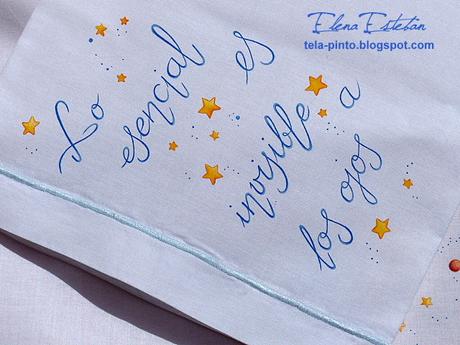 Elena Esteban
tela-pinto.blogspot.com
Lo
esencial es
invisible a
los ojos